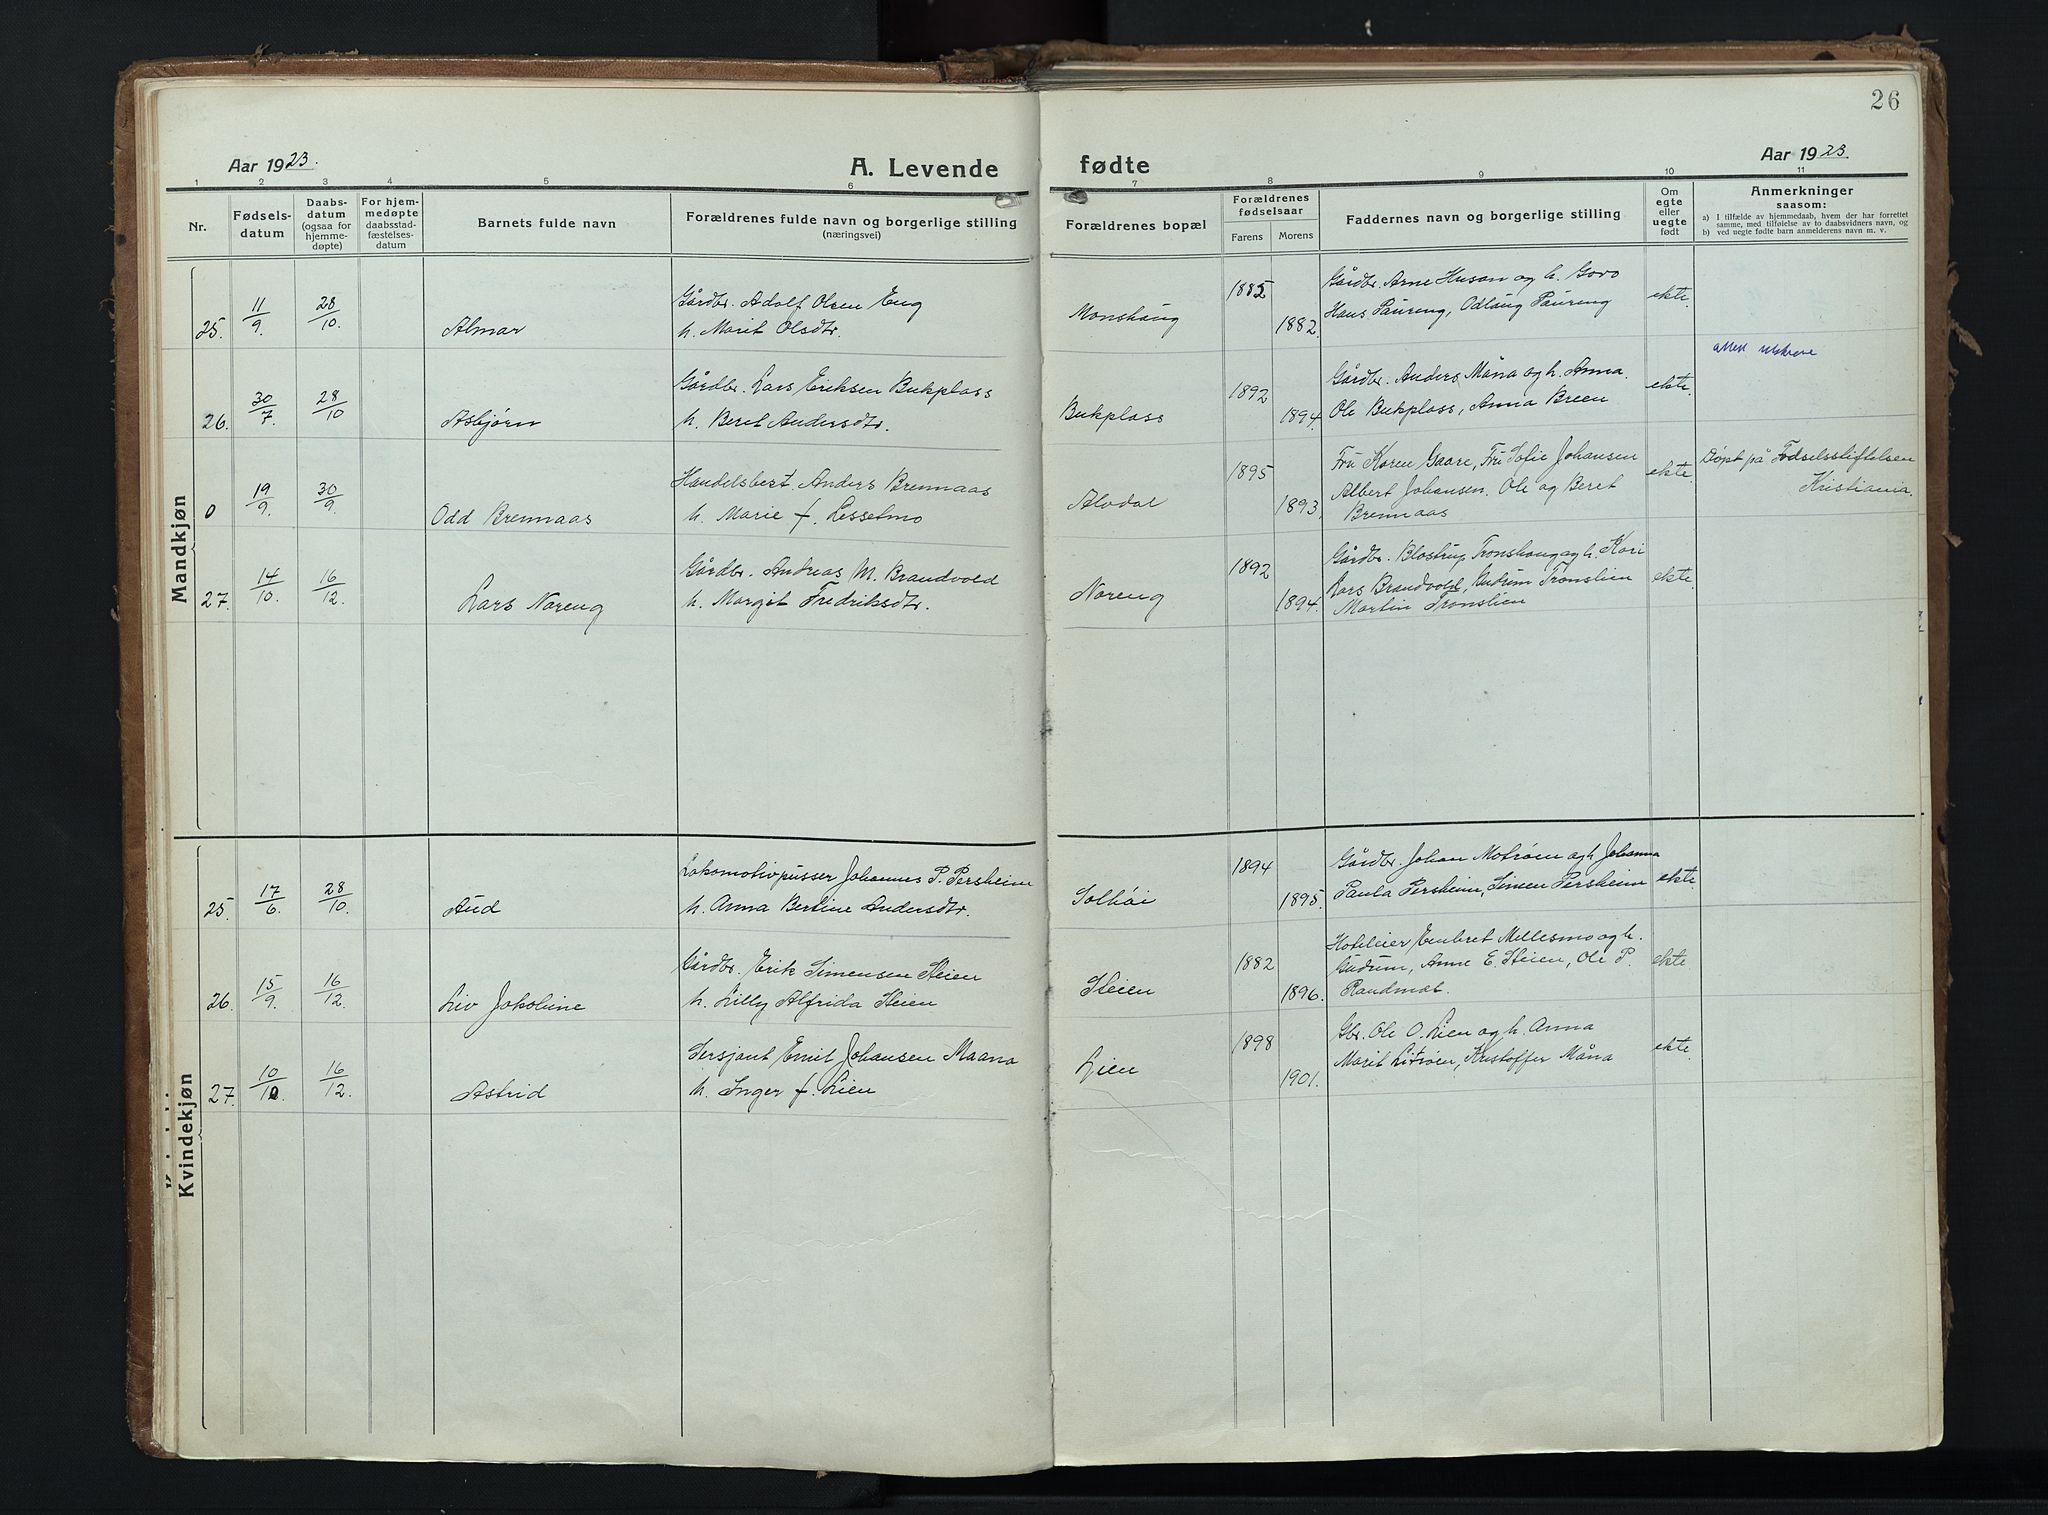 26
Aar 1923.
A. Levende
fødte
Aar 1923.
1 2 3 4 5 6 7 8 9 10 11
Nr.
Fødsels-
datum
Daabs-
datum
(ogsaa for
hjemme-
døpte)
For hjem-
medøpte
daabsstad-
fæstelses-
datum
Barnets fulde navn
Forældrenes fulde navn og borgerlige stilling
(næringsvei)
Forældrenes bopæl
Forældrenes
fødselsaar
Farens Morens
Faddernes navn og borgerlige stilling
Om
egte
eller
uegte
født
Anmerkninger
saasom:
a) I tilfælde av hjemmedaab, hvem der har forrettet
samme, med tilføielse av to daabsvidners navn, og
b) ved uegte fødte barn anmelderens navn m. v.
Mandkjøn
25. 11/9. 28/10. Almar
Gårdbr. Adolf Olsen Eng
h. Marit Olsdtr.
Monshaug 1885 1882.
Gårdbr. Arne Husan og h. Goro
Hans Paureng, Odlaug Paureng
ekte.
attest utskreve
26. 30/7. 28/10 Asbjørn
Gårdbr. Lars Eriksen Bukplass
h. Beret Andersdtr.
Bukplass 1892 1894.
Gårdbr. Anders Måna og h. Anna.
Ole Bukplass, Anna Breen
ekte.
0 19/9. 30/9. Odd Brennaas
Handelsbest. Anders Brennaas
h. Marie f. Lesselmo
Alvdal 1895 1893.
Fru Karen Gaare, Fru Sofie Johansen
Albert Johansen. Ole og Beret
Brennaas
ekte.
Døpt på Fødselsstiftelsen
Kristiania.
27. 14/10. 16/12. Lars Noreng
Gårdbr. Andreas M. Brandvold
h. Margit Fredriksdtr.
Noreng 1892 1894.
Gårdbr. Blostrup Tronshaug og h. Kari
Lars Brandvold, Gudrun Tronslien
Martin Tronslien
ekte.
Kvindekjøn
25. 17/6. 28/10. Aud
Lokomotivpusser Johannes P. Persheim
h. Anna Bertine Andersdtr.
Solhøi 1894 1895.
Gårdbr. Johan Motrøen og h. Johanna
Paula Persheim, Simen Persheim
ekte
26. 15/9. 16/12. Liv Jakobine
Gårdbr. Erik Simensen Steien
h. Lilly Alfrida Steien
Steien 1882 1896.
Hoteleier Embret Mellesmo og h.
Gudrun, Anne E. Steien, Ole P.
Randmæl.
ekte
27. 10/10 16/12. Astrid
Sersjant Emil Johansen Maana
h. Inger f. Lien
Lien 1898 1901.
Gbr. Ole O. Lien og h. Anna
Marit Litrøen, Kristoffer Måna
ekte.